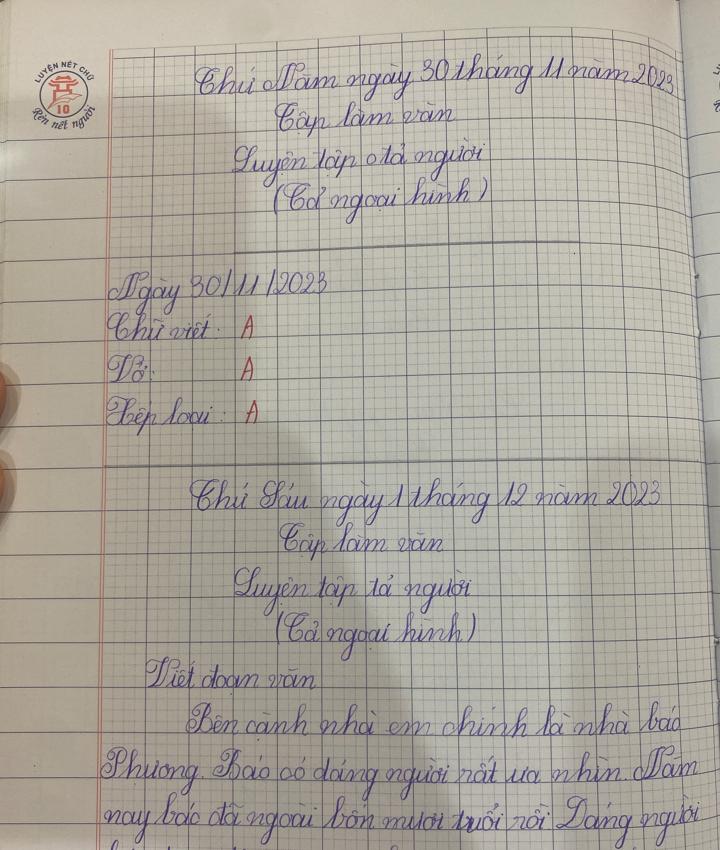 LUYỆN NÉT CHỮ
10
Rèn nết người
Thứ Năm ngày 30 tháng 11 năm 2023
Tập làm văn
Luyện tập tả người
(Tả ngoại hình)
Ngày 30/11/2023
Chữ viết: A
Vở: A
Xếp loại: A
Thứ Sáu ngày 1 tháng 12 năm 2023
Tập làm văn
Luyện tập tả người
(Tả ngoại hình)
Viết đoạn văn
Bên cạnh nhà em chính là nhà bác
Phương. Bác có dáng người rất ưa nhìn. Năm
nay bác đã ngoài bốn mươi tuổi rồi. Dáng người